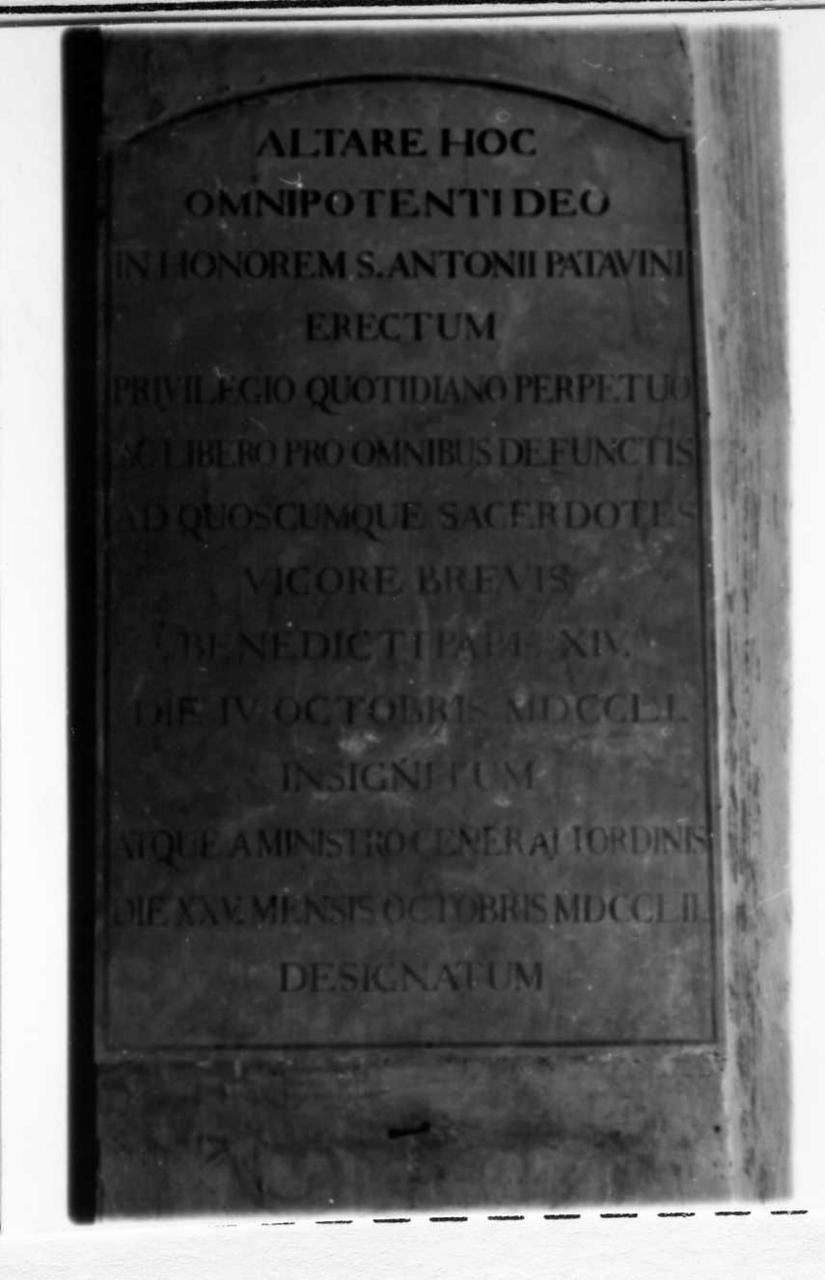 ALTARE HOC
OMNIPOTENTI DEO
IN HONOREM S. ANTONII PATAVINI
ERECTUM
PRIVILEGIO QUOTIDIANO PERPETUO
AC LIBERO PRO OMNIBUS DEFUNCTIS
AD QUOSCUMQUE SACERDOTES
VIGORE BREVIS
BENEDICTI PAPE XIV.
DIE IV OCTOBRIS MDCCLI.
INSIGNITUM
ATQUE A MINISTRO GENERALI ORDINIS
DIE XXV. MENSIS OCTOBRIS MDCCLII.
DESIGNATUM